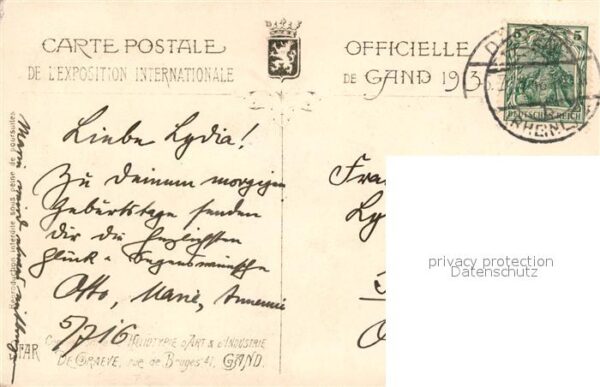 CARTE POSTALE
DE L'EXPOSITION INTERNATIONALE
OFFICIELLE
DE GAND 1913
5
DEUTSCHES REICH
(RHEINL.)
Liebe Lydia!
Zu Deinem morgigen
Geburtstage senden
dir die herzlichsten
Glück- u. Segenswünsche
Otto, Marie, Annemie
5/7 16
Fra
Ly
privacy protection
Datenschutz
Reproduction interdite sous peine de poursuites
Marie wird
PAR
HÉLIOTYPIE D'ART & D'INDUSTRIE
DE GRAEVE, rue de Bruges 41, GAND.